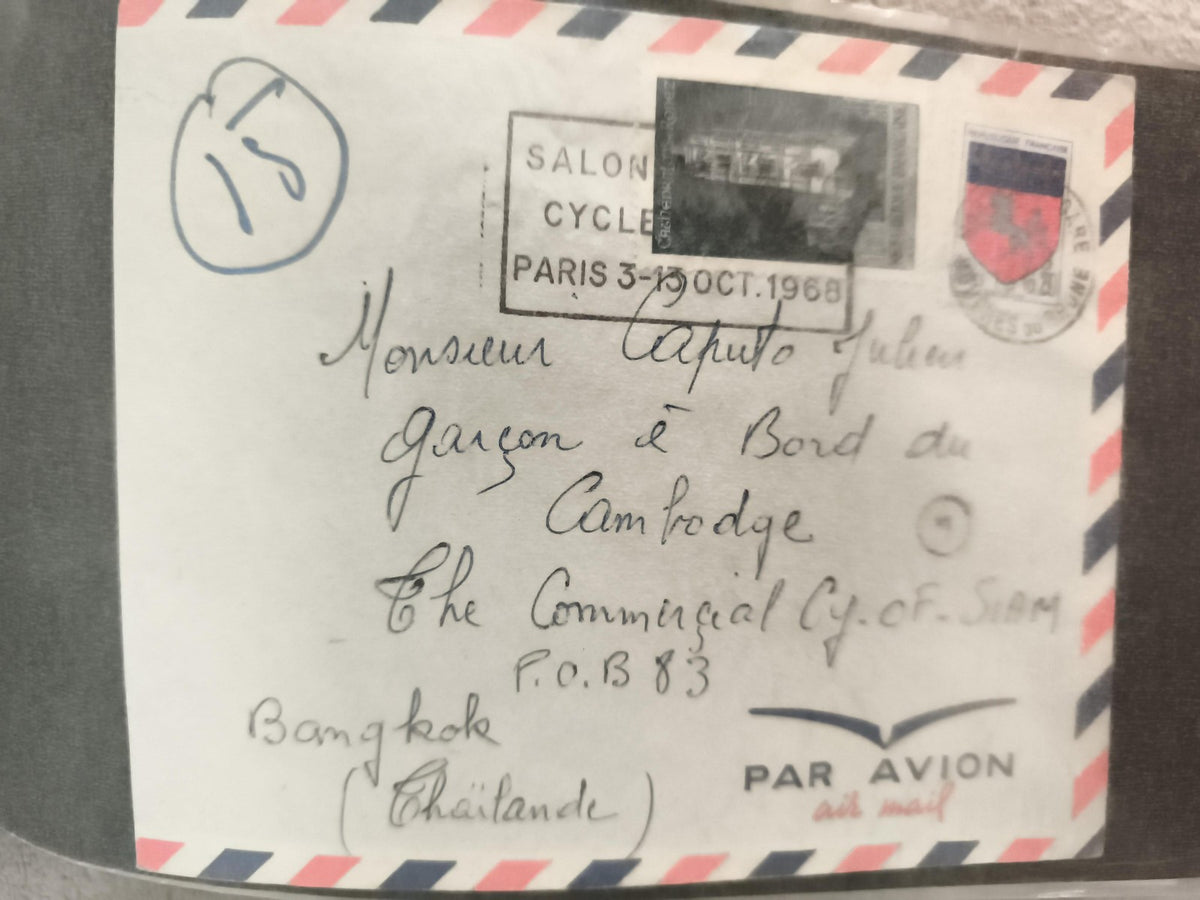 15
SALON
CYCLE
PARIS 3-13 OCT. 1968
REPUBLIQUE FRANCAISE
Monsieur Caputo Julien
garçon à Bord du
Cambodge
The Commerçial Cy. OF. SIAM
P.O.B 83
Bangkok
(Thaïlande)
PAR AVION
air mail